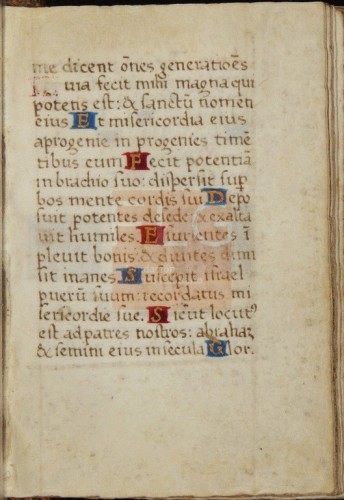 me dicent ōnes generatiōes
Quia fecit mihi magna qui
potens est: & sanctū nomen
eius Et misericordia eius
aprogenie in progenies timē
tibus eum Fecit potentiā
in brachio suo: dispersit sup
bos mente cordis sui Depo
suit potentes desede: & exalta
uit humiles. Esurientes ī
pleuit bonis: & diuites dimi
sit inanes. Suscepit israel
puerū suum: recordatus mi
sericordie sue. Sicut locut⁹
est ad patres nostros: abrahaz
& semini eius in secula Glor.